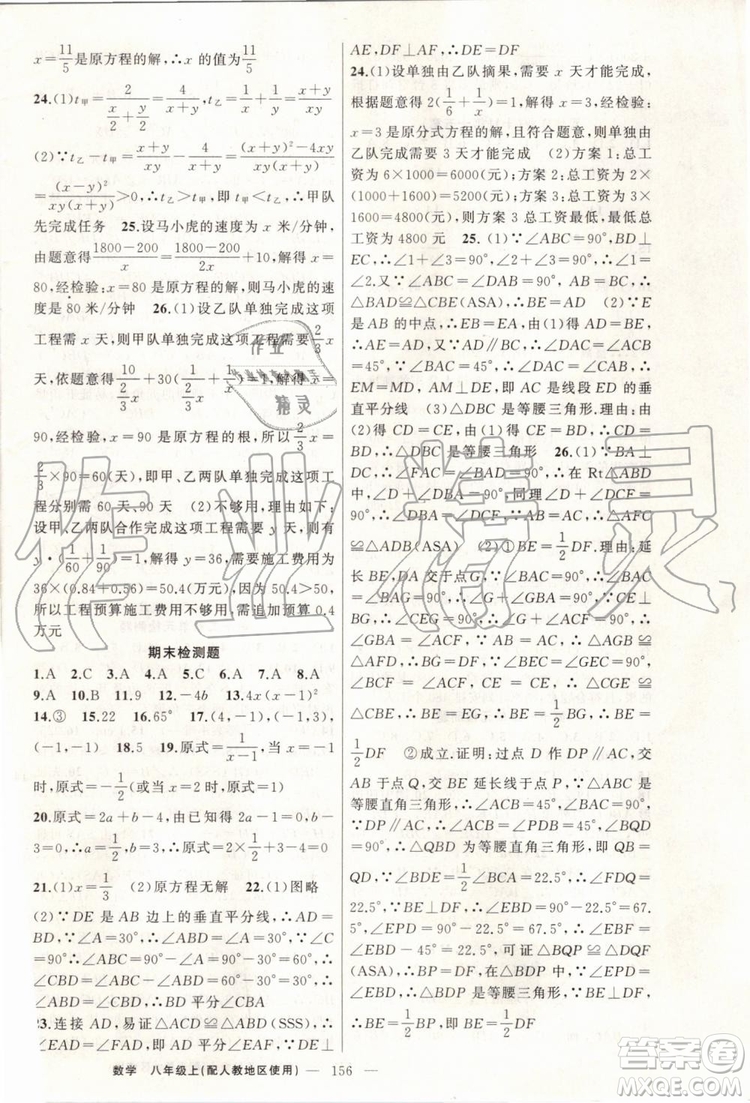 x=11/5是原方程的解,∴x的值为11/5
24.(1)t甲=2/(x/2+y/2)=4/(x+y),t乙=1/x+1/y=(x+y)/xy
(2)∵t乙-t甲=(x+y)/xy-4/(x+y)=((x+y)²-4xy)/(xy(x+y))
=(x-y)²/(xy(x+y))>0,∴t乙>t甲,即t甲<t乙,∴甲队
先完成任务 25.设马小虎的速度为x米/分钟,
由题意得(1800-200)/x=(1800-200)/2x+10,解得x=
80,经检验:x=80是原方程的解,则马小虎的速
度是80米/分钟 26.(1)设乙队单独完成这项
工程需要x天,则甲队单独完成这项工程需要2/3x
天,依题意得10/(2/3x)+30(1/(2/3x)+1/x)=1,解得x=
90,经检验,x=90是原方程的解,∴2/3x=
2/3×90=60(天),即甲、乙两队单独完成这项工
程分别需要60天、90天 (2)不够用,理由如下:
设甲、乙两队合作完成这项工程需要y天,则有
y·(1/60+1/90)=1,解得y=36,需要施工费用为
36×(0.84+0.56)=50.4(万元),∵50.4>50,
所以工程预算施工费用不够用,需追加预算0.4
万元
期末检测题
1.A 2.C 3.A 4.B 5.C 6.A 7.A 8.A
9.A 10.B 11.9 12.-4b 13.x(x-1)²
14.③ 15.22 16.65° 17.(4,-1),(-1,3),
(-1,-1) 18.5 19.(1)原式=1/(x-1),当x=-1
时,原式=-1/2 (2)原式=-x-4,当x=-1/3
时,原式=-(-1/3)-4=-11/3
20.原式=2a+b-4,由由已知得2a-1=0,b-
3=0,∴a=1/2,b=3,∴原式=2×1/2+3-4=0
21.(1)x=1/3 (2)原方程无解 22.(1)图略
(2)∵DE是AB边上的垂直平分线,∴AD=
BD,∴∠ABD=∠A=30°,∵∠C=90°,∴∠ABC=
90°-∠A=90°-30°=60°,∴∠CBD=∠ABC-
∠ABD=60°-30°=30°,∴∠ABD=
∠CBD,∴BD平分∠CBA
23.连接AD,易证△ACD≌△ABD(SSS),∴∠
EAD=∠FAD,即AD平分∠EAF,又∵DE⊥
AE,DF⊥AF,∴DE=DF
24.(1)设单独由乙队摘果,需要x天才能完成,
根据题意得2(1/6+1/x)=1,解得x=3,经检验:
x=3是原分式方程的解,且符合题意,则单独由
乙队完成需要3天才能完成 (2)方案1:总工
资为6×1000=6000(元);方案2:总工资为2×
(1000+1600)=5200(元);方案3:总工资为3×
1600=4800(元),则方案3总工资最低,最低总
工资为4800元 25.(1)∵∠ABC=90°,BD⊥
EC,∴∠1+∠3=90°,∠2+∠3=90°,∴∠1=
∠2,∵∠BAD=∠CBE=90°,AB=BC,∴
△BAD≌△CBE(ASA),∴AD=BE (2)∵E
是AB的中点,∴EB=EA,∵AD=BE,∴AE=
AD,∵AD∥BC,∴∠7=∠ACB=45°,∵∠6=
45°,∴∠6=∠7,又∵AD=AE,∴AM⊥DE,且
EM=DM,即AC是线段ED的垂
直平分线 (3)△DBC是等腰三角形.理由:由
(2)得CD=CE,由(1)得CE=BD,∴CD=BD,
∴△DBC是等腰三角形 26.(1)∵BA⊥
DC,CF⊥BD,∴∠BFC=90°,∵在Rt△ABD
中,∠D+∠DBA=90°,∵∠D+∠DCF=
90°,∴∠DBA=∠DCF,∵AB=AC,∴△ACF
≌△ADB(ASA) (2)①BE=1/2DF.理由:延
长BE,DA交于点G,∵∠BAC=90°,∴∠GBA
+∠G=90°,∵∠ACF+∠G=90°,∴
∠GBA=∠ACF,又AB=AC,∴△AGB≌
△AFC(ASA),∴BG=CF,∵∠BEC=∠GEC=
90°,∠GCE=∠BCE,CE=CE,∴△CGE≌
△CBE,∴BE=GE,∴BE=1/2BG,∴BE=
1/2DF ②成立.证明:过点D作DP∥AC,交
AB于点Q,交BE延长线于点P,∵△ABC是
等腰直角三角形,∴∠ACB=45°,∠BAC=90°,
∵DP∥AC,∴∠ACB=∠PDB=45°,∠BQD=
∠BAC=90°,∴△QBD为等腰直角三角形,∴
BQ=QD,∵∠BDE=1/2∠ACB=22.5°,∴∠EDP=
22.5°,∵BE⊥DF,∴∠EBD=90°-22.5°=67.
5°,∠EPD=90°-22.5°=67.5°,∴∠EBF=
∠EBD-45°=22.5°,可证△BQP≌△DQF
(ASA),∴BP=DF,在△BDP中,∵∠EBD=
∠EPD=67.5°,∴△BDP是等腰三角形,∵BE⊥DF,
∴BE=1/2BP,即BE=1/2DF
数学 八年级上(配人教地区使用) — 156 —
作业精灵
作业精灵
答案圈
MXQE.COM